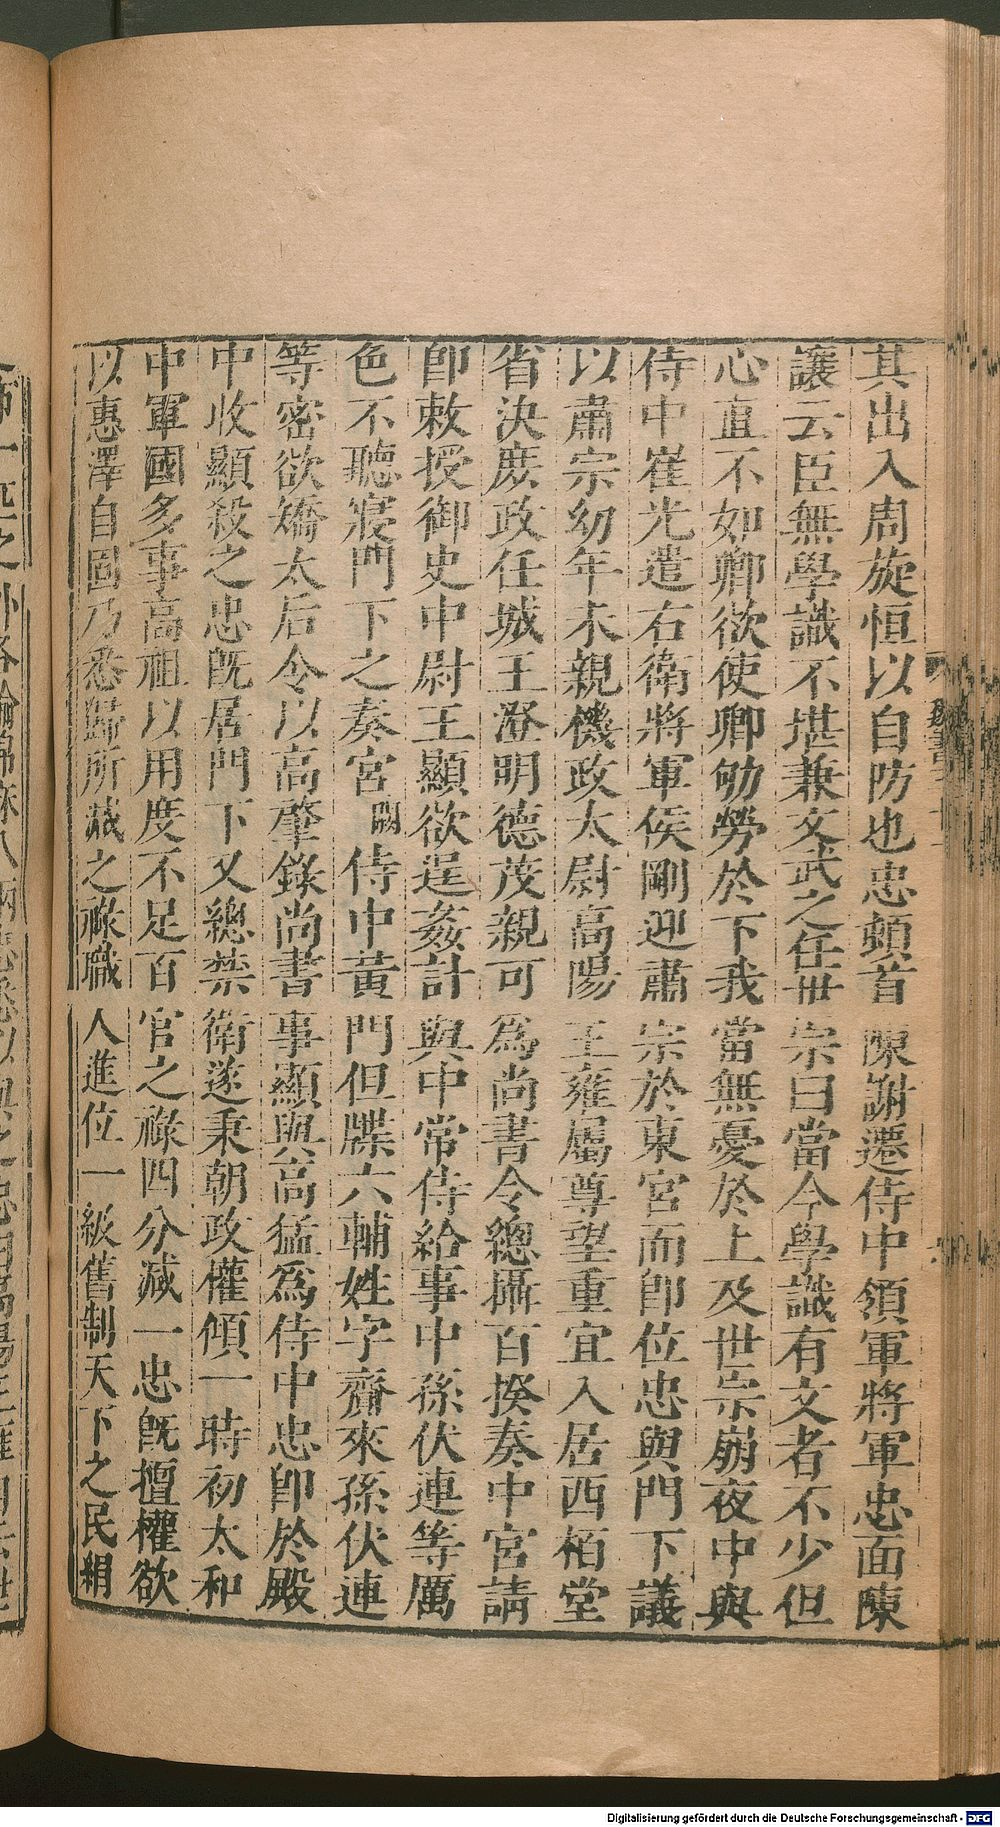 其出入周旋恒以自防也忠頓首陳謝遷侍中領軍將軍忠面陳
讓云臣無學識不堪兼文武之任世宗曰當今學識有文者不少但
心直不如卿欲使卿劬勞於下我當無憂於上及世宗崩夜中與
侍中崔光遣右衛將軍侯剛迎肅宗於東宮而卽位忠與門下議
以肅宗幼年未親機政太尉高陽王雍屬尊望重宜入居西栢堂
省決庶政任城王澄明德茂親可爲尚書令總攝百揆奏中宮請
卽敕授御史中尉王顯欲逞姦計與中常侍給事中孫伏連等厲
色不聽寢門下之奏宮闕侍中黃門但牒六輔姓字齎來孫伏連
等密欲矯太后令以高肇錄尚書事顯與高猛爲侍中忠卽於殿
中收顯殺之忠旣居門下又總禁衛遂秉朝政權傾一時初太和
中軍國多事高祖以用度不足百官之祿四分減一忠旣擅權欲
以惠澤自固乃悉歸所減之祿職人進位一級舊制天下之民絹
Digitalisierung gefördert durch die Deutsche Forschungsgemeinschaft - DFG